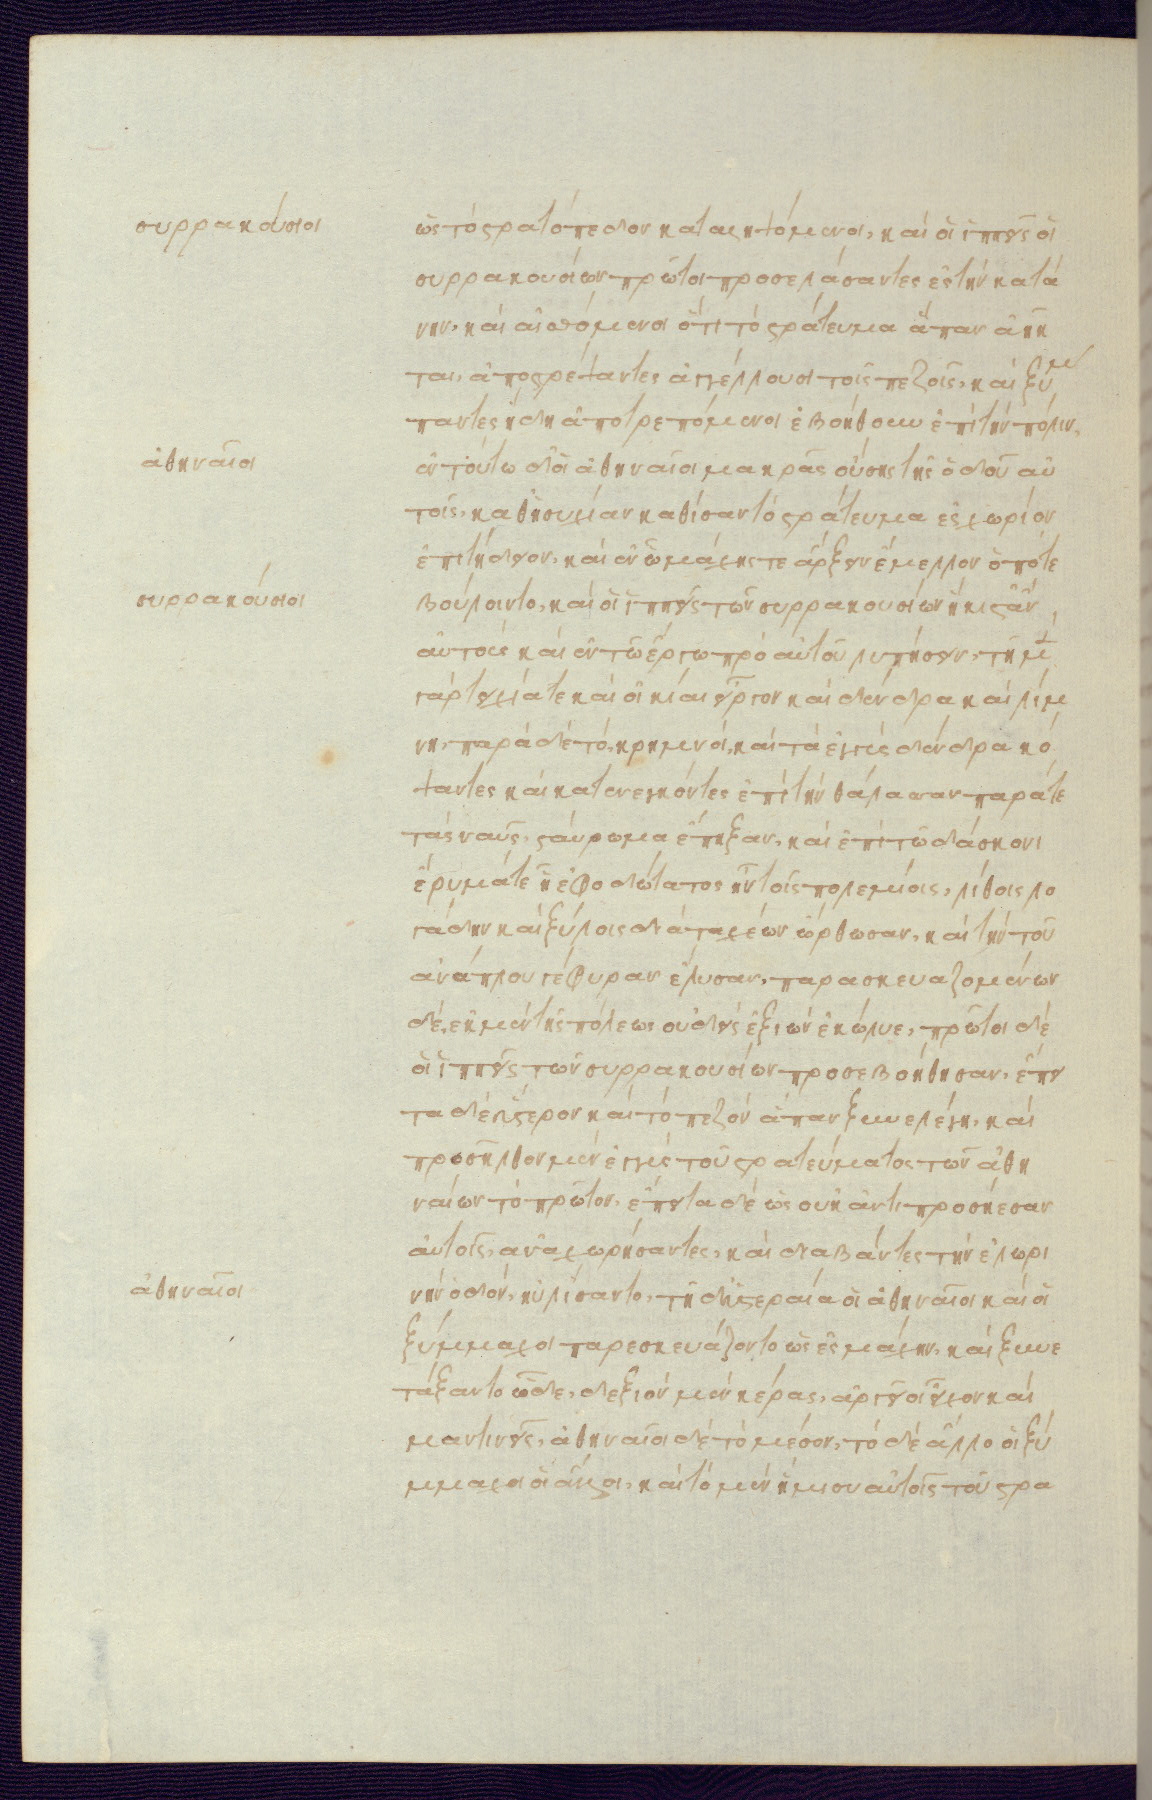 συρρακούσιοι
ὡς τὸ στρατόπεδον καταληψόμενοι, καὶ οἱ ἱππεῖς οἱ
συρρακουσίων πρῶτοι προσελάσαντες ἐς τὴν κατά
νην, καὶ αἰσθόμενοι ὅτι τὸ στράτευμα ἅπαν ἀνῆκ
ται, ἀποστρέψαντες ἀγγέλλουσι τοῖς πεζοῖς, καὶ ξύμ
παντες ἤδη ἀποτρεπόμενοι ἐβοήθουν ἐπὶ τὴν πόλιν,
ἀθηναῖοι
ἐν τούτω δ' οἱ ἀθηναῖοι μακρᾶς οὔσης τῆς ὁδοῦ αὐ
τοῖς, καθ' ἡσυχίαν καθίσαν τὸ στράτευμα ἐς χωρίον
ἐπιτήδειον, καὶ ἐν ὧ μάχης τε ἄρξειν ἔμελλον ὁπότε
συρρακούσιοι
βούλοιντο, καὶ οἱ ἱππεῖς τῶν συρρακουσίων ἥκιστ' ἂν
αὐτοὺς καὶ ἐν τῶ ἔργω πρὸ αὐτοῦ λυπήσειν, τῆ μὲν
γὰρ τειχία τε καὶ οἰκίαι εἶργον καὶ δένδρα καὶ λίμ
νη, παρὰ δὲ τὸ, κρημνοὶ, καὶ τὰ ἐγγὺς δένδρα κό
ψαντες καὶ κατενεγκόντες ἐπὶ τὴν θάλασσαν παρά τε
τὰς ναῦς, σταύρωμα ἔπηξαν, καὶ ἐπὶ τῶ δάσκονι
ἔρυμά τε ἧ ἐφοδώτατος ἦν τοῖς πολεμίοις, λίθοις λο
γάδην καὶ ξύλοις διὰ ταχέων ὤρθωσαν, καὶ τὴν τοῦ
ἀνάπλου γέφυραν ἔλυσαν, παρασκευαζομένων
δὲ, ἐκ μὲν τῆς πόλεως οὐδεὶς ἐξιὼν ἐκώλυε, πρῶτοι δὲ
οἱ ἱππεῖς τῶν συρρακουσίων προσεβοήθησαν, ἔπει
τα δὲ ὕστερον καὶ τὸ πεζὸν ἅπαν ξυνελέγη, καὶ
προσῆλθον μὲν ἐγγὺς τοῦ στρατεύματος τῶν ἀθη
ναίων τὸ πρῶτον, ἔπειτα δὲ ὡς οὐκ ἀντιπροσήεσαν
αὐτοῖς, ἀναχωρήσαντες, καὶ διαβάντες τὴν ἑλωρι
ἀθηναῖοι
νὴν ὁδὸν, ηὐλίσαντο, τῆ δ' ὑστεραία οἱ ἀθηναῖοι καὶ οἱ
ξύμμαχοι παρεσκευάζοντο ὡς ἐς μάχην, καὶ ξυνε
τάξαντο ὧδε, δεξιὸν μὲν κέρας, ἀργεῖοι εἶχον καὶ
μαντινεῖς, ἀθηναῖοι δὲ τὸ μέσον, τὸ δὲ ἄλλο οἱ ξύ
μμαχοι οἱ ἄλλοι, καὶ τὸ μὲν ἥμισυ αὐτοῖς τοῦ στρα